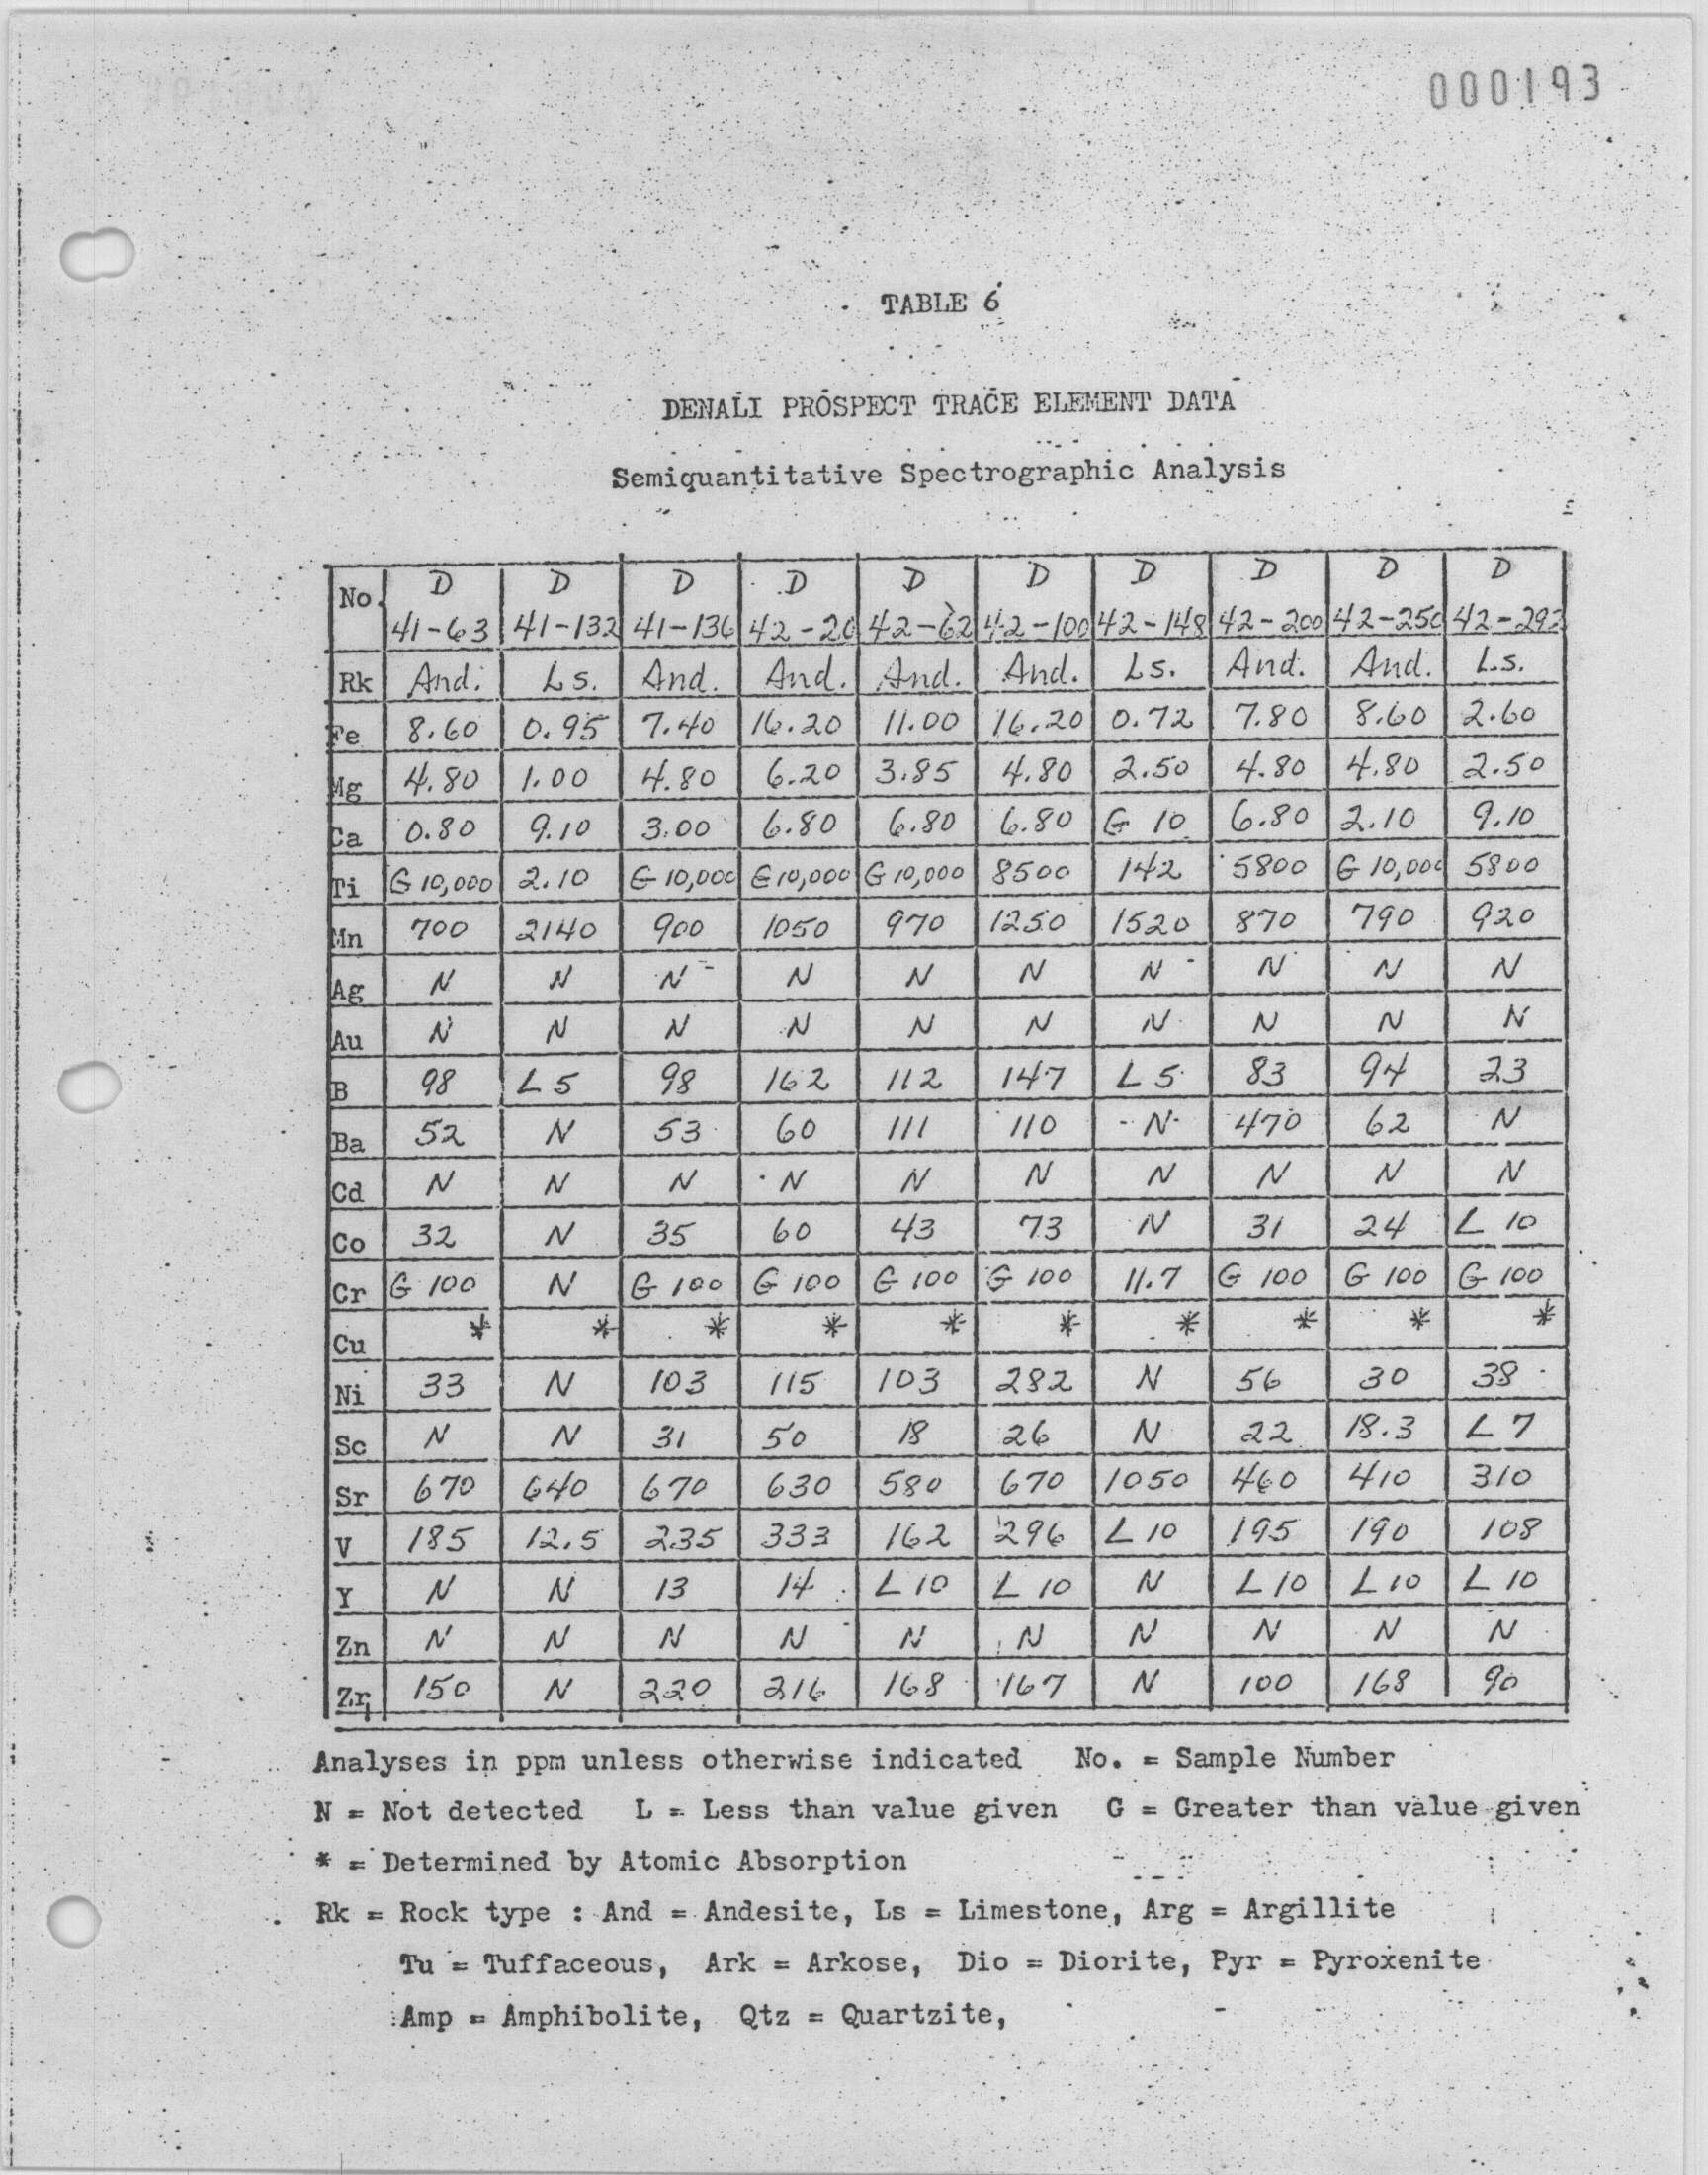 000193
TABLE 6
DENALI PROSPECT TRACE ELEMENT DATA
Semiquantitative Spectrographic Analysis
No. D D D D D D D D D D
41-63 41-132 41-136 42-20 42-62 42-100 42-148 42-200 42-250 42-292
Rk And. Ls. And. And. And. And. Ls. And. And. Ls.
Fe 8.60 0.95 7.40 16.20 11.00 16.20 0.72 7.80 8.60 2.60
Mg 4.80 1.00 4.80 6.20 3.85 4.80 2.50 4.80 4.80 2.50
Ca 0.80 9.10 3.00 6.80 6.80 6.80 G 10 6.80 2.10 9.10
Ti G 10,000 2.10 G 10,000 G 10,000 G 10,000 8500 142 5800 G 10,000 5800
Mn 700 2140 900 1050 970 1250 1520 870 790 920
Ag N N N N N N N N N N
Au N N N N N N N N N N
B 98 L 5 98 162 112 147 L 5 83 94 23
Ba 52 N 53 60 111 110 N 470 62 N
Cd N N N N N N N N N N
Co 32 N 35 60 43 73 N 31 24 L 10
Cr G 100 N G 100 G 100 G 100 G 100 11.7 G 100 G 100 G 100
Cu * * * * * * * * * *
Ni 33 N 103 115 103 282 N 56 30 38
Sc N N 31 50 18 26 N 22 18.3 L 7
Sr 670 640 670 630 580 670 1050 460 410 310
V 185 12.5 235 333 162 296 L 10 195 190 108
Y N N 13 14 L 10 L 10 N L 10 L 10 L 10
Zn N N N N N N N N N N
Zr 150 N 220 216 168 167 N 100 168 90
Analyses in ppm unless otherwise indicated No. = Sample Number
N = Not detected L = Less than value given G = Greater than value given
* = Determined by Atomic Absorption
Rk = Rock type : And = Andesite, Ls = Limestone, Arg = Argillite
Tu = Tuffaceous, Ark = Arkose, Dio = Diorite, Pyr = Pyroxenite
Amp = Amphibolite, Qtz = Quartzite,